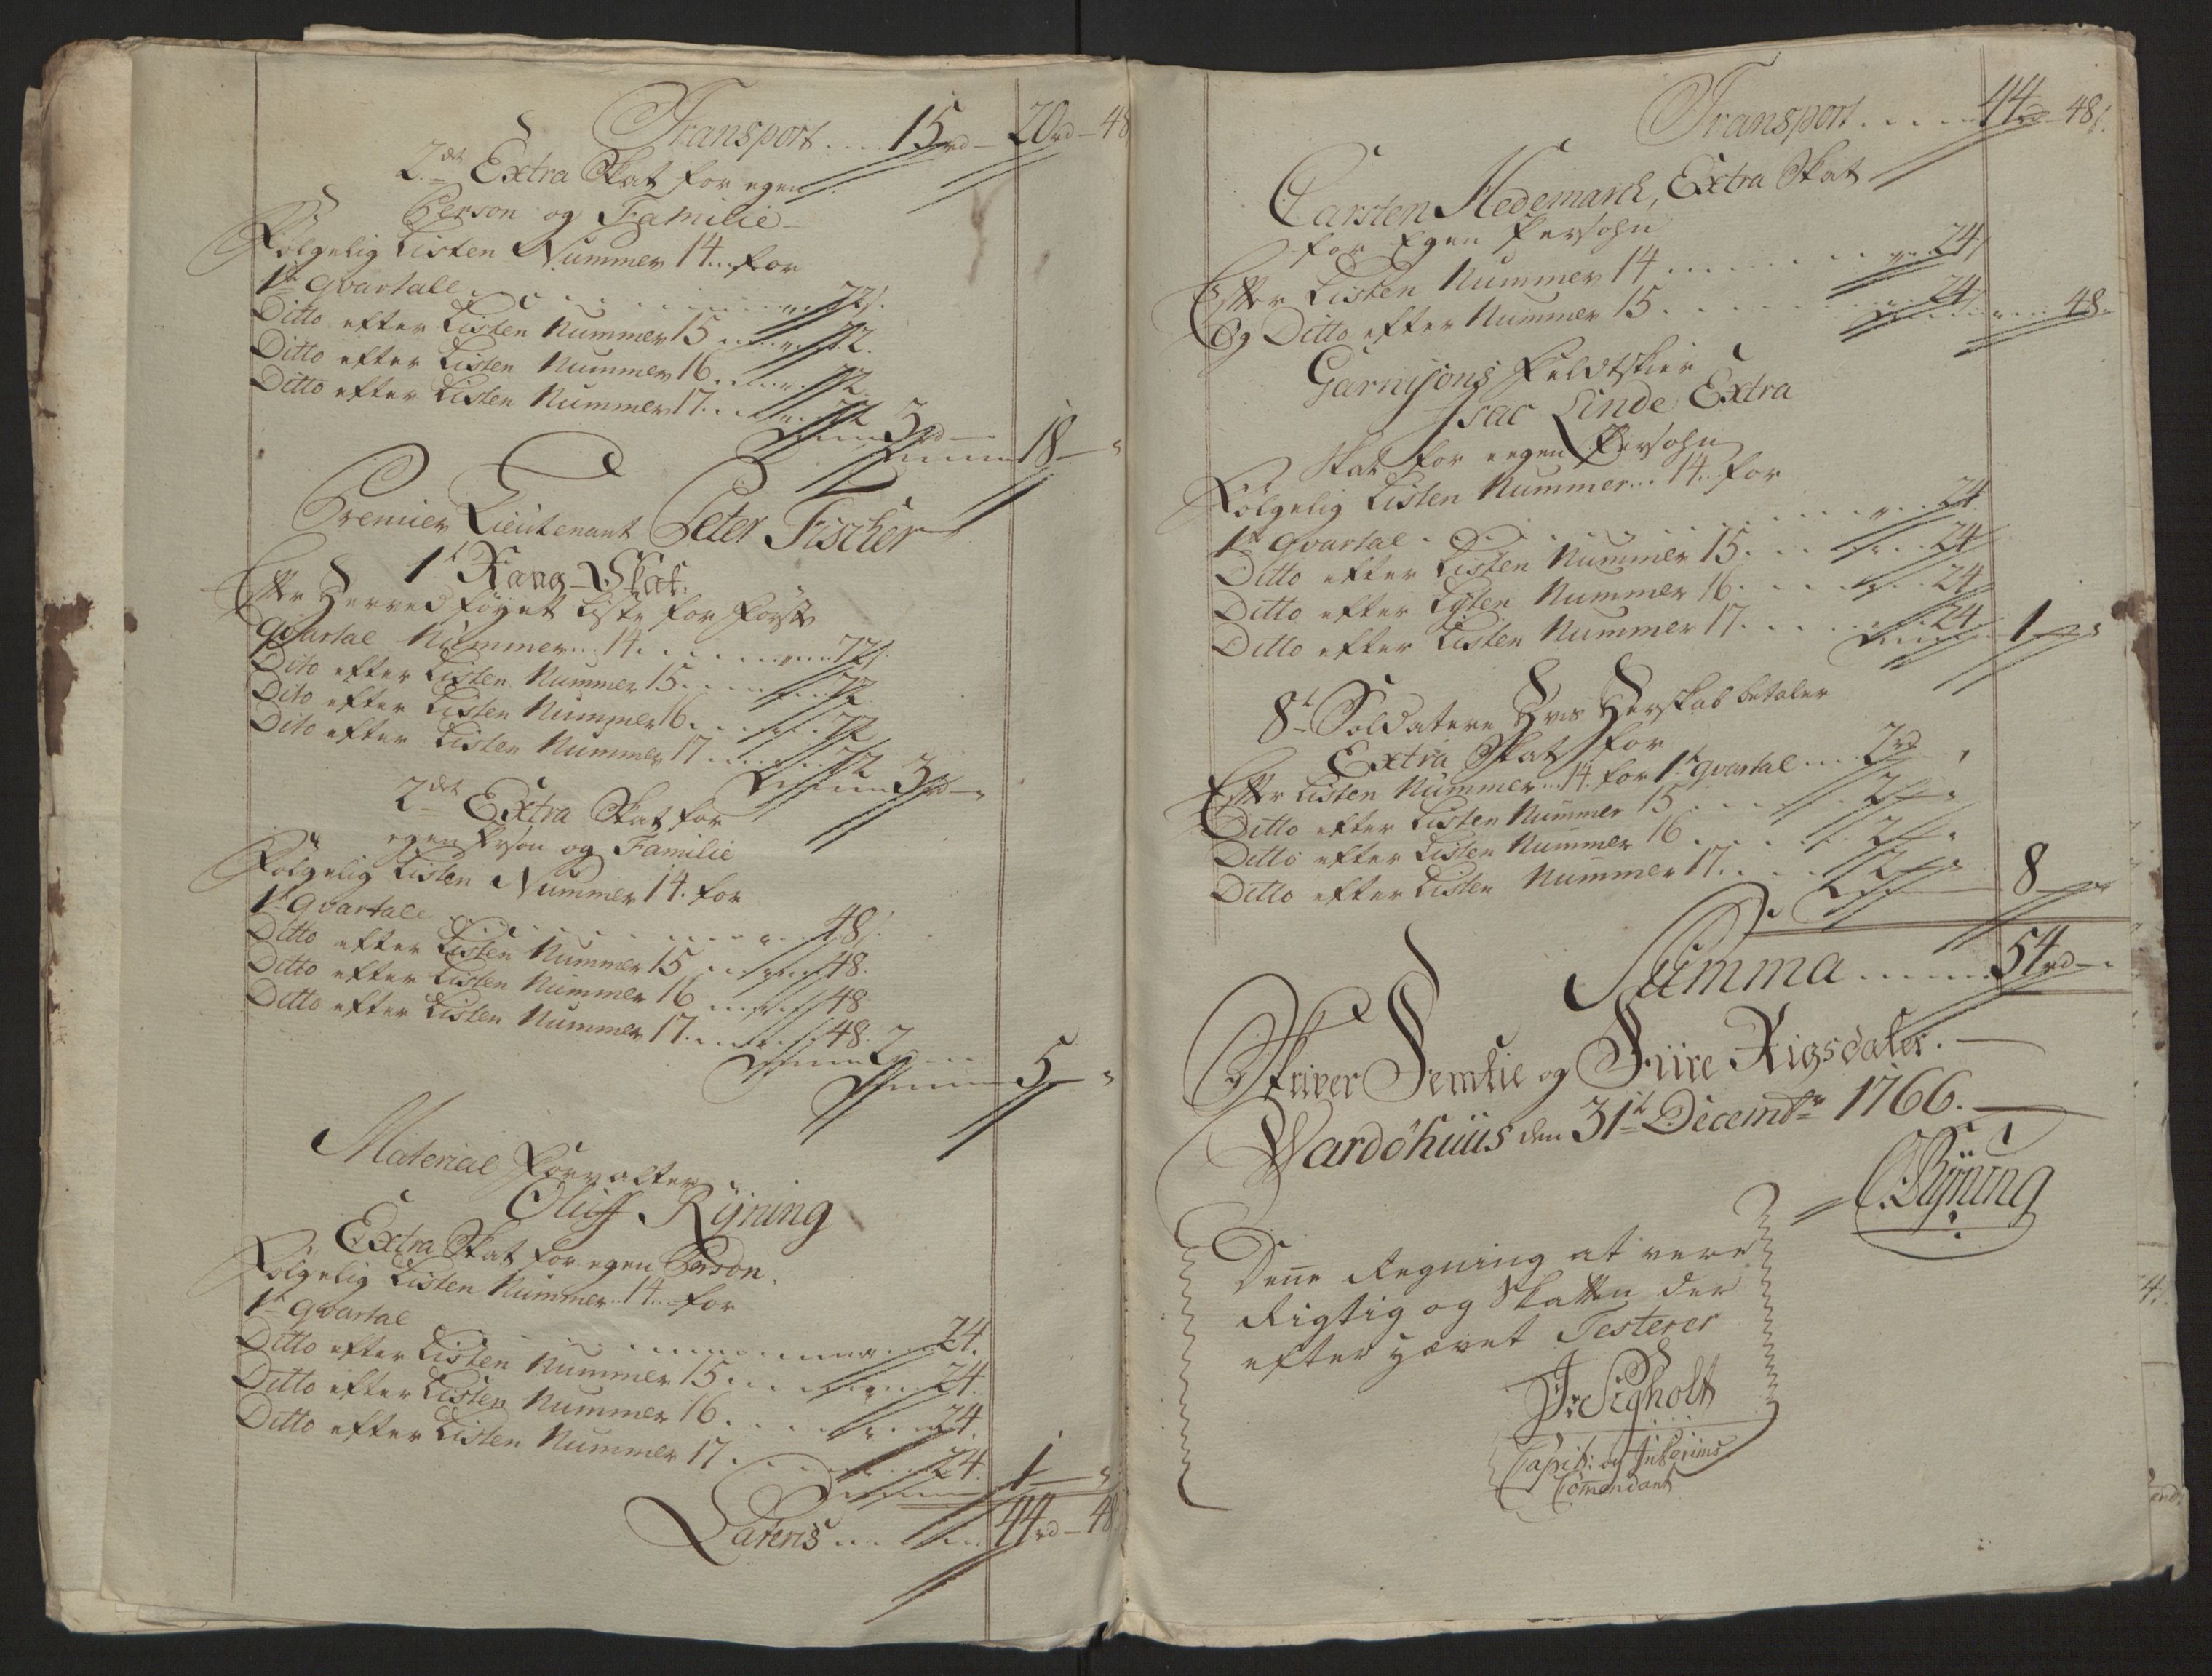 Transport .... 15 rd – 20 rd – 48
2det Extra Skat for egen
Person og Familie
Følgelig Listen Nummer 14 .. for
1te Qvartall ... 72 s.
Ditto efter Listen Nummer 15 ... 72.
Ditto efter Listen Nummer 16 ... 72.
Ditto efter Listen Nummer 17 ... 72 3 rd –
18 – "
Premier Lieutenant Peter Fischer
1t Rang-Skat.
Efter Herved föyet Liste for Förste
Qvartal Nummer ... 14 ... 72 s.
Dito efter Listen Nummer 15 ... 72
Dito efter Listen Nummer 16 ... 72
Dito efter Listen Nummer 17 ... 72 3 rd – "
2det Extra Skat for
egen Person og Familie
Følgelig Listen Nummer 14. for
1t Qvartall ... 48 s.
Ditto efter Listen Nummer 15 ... 48.
Ditto efter Listen Nummer 16 ... 48
Ditto efter Listen Nummer 17 ... 48. 2
5 – "
Material Forvalter
Oluff Rÿning
Extra Skat for egen Person.
Følgelig Listen Nummer .. 14 ... for
1t Qvartal ... 24.
Ditto efter Listen Nummer 15 ... 24.
Ditto efter Listen Nummer 16 ... 24.
Ditto efter Listen Nummer 17 ... 24. 1 – "
Lateris ... 44 rd – 48
Transport ..... 44 rd – 48 s.
Carsten Hedemarck, Extra Skat
for Egen Persohn
Efter Listen Nummer 14 ... 24
Og Ditto efter Nummer 15 ... 24 ... 48.
Garnisons Feldtskier
Isac Linde Extra
Skat for eegen Persohn
Følgelig Listen Nummer ... 14 .. for
1te Qvartal ... 24
Ditto efter Listen Nummer 15 ... 24
Ditto efter Listen Nummer 16 ... 24
Ditto efter Listen Nummer 17 ... 24 1 – "
8t Soldatere Hvis Herskab betaler
Extra Skat for
Efter Listen Nummer ... 14. for 1t Qvartal ... 2 rd "
Ditto efter Listen Nummer 15 ... 2 – "
Ditto efter Listen Nummer 16 ... 2 – "
Ditto efter Listen Nummer 17 ... 2 – " 8 – "
Summa ..... 54 rd – "
Skriver Femtie og Fiire Rigsdaler. –
Wardöhuus den 31te Decembr 1766. –
O. Rÿning
Denne Regning at være
Rigtig og Skatten der
efter Testerer
Capit: og Interims
Commendant